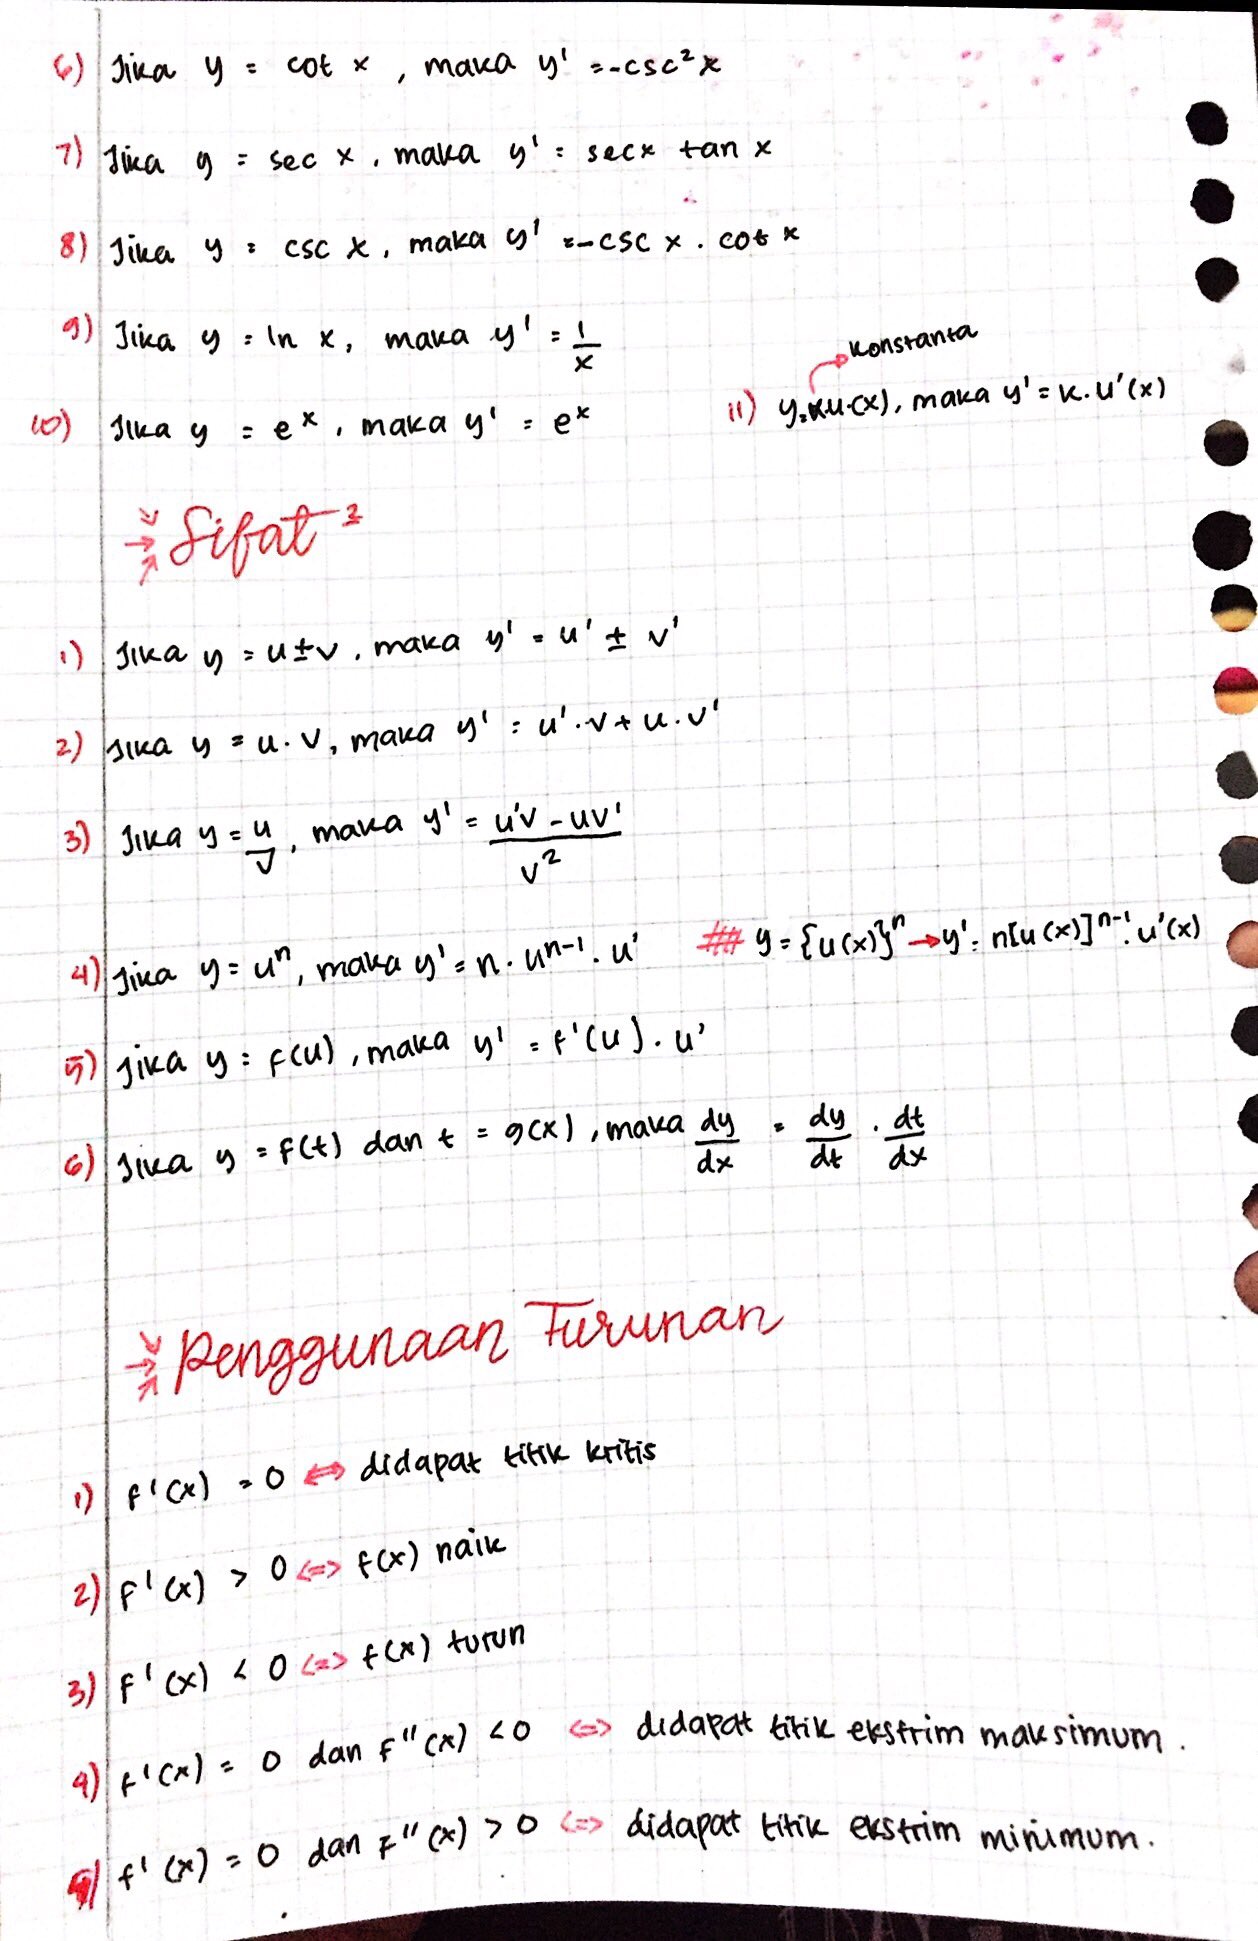 6) Jika y = cot x, maka y' = -csc²x
7) Jika y = sec x, maka y' = sec x tan x
8) Jika y = csc x, maka y' = -csc x . cot x
9) Jika y = ln x, maka y' = 1/x
Konstanta
10) Jika y = eˣ, maka y' = eˣ
11) y = k.u.(x), maka y' = k.u'(x)
Sifat²
1) Jika y = u±v, maka y' = u' ± v'
2) Jika y = u.v, maka y' = u'.v + u.v'
3) Jika y = u/v, maka y' = u'v - uv' / v²
4) Jika y = uⁿ, maka y' = n . uⁿ⁻¹ . u' ## y = {u(x)}ⁿ → y' = n[u(x)]ⁿ⁻¹. u'(x)
5) Jika y = f(u), maka y' = f'(u) . u'
6) Jika y = f(t) dan t = g(x), maka dy/dx = dy/dt . dt/dx
Penggunaan Turunan
1) f'(x) = 0 ⇔ didapat titik kritis
2) f'(x) > 0 <=> f(x) naik
3) f'(x) < 0 <=> f(x) turun
4) f'(x) = 0 dan f''(x) < 0 <=> didapat titik ekstrim maksimum.
5) f'(x) = 0 dan f''(x) > 0 <=> didapat titik ekstrim minimum.